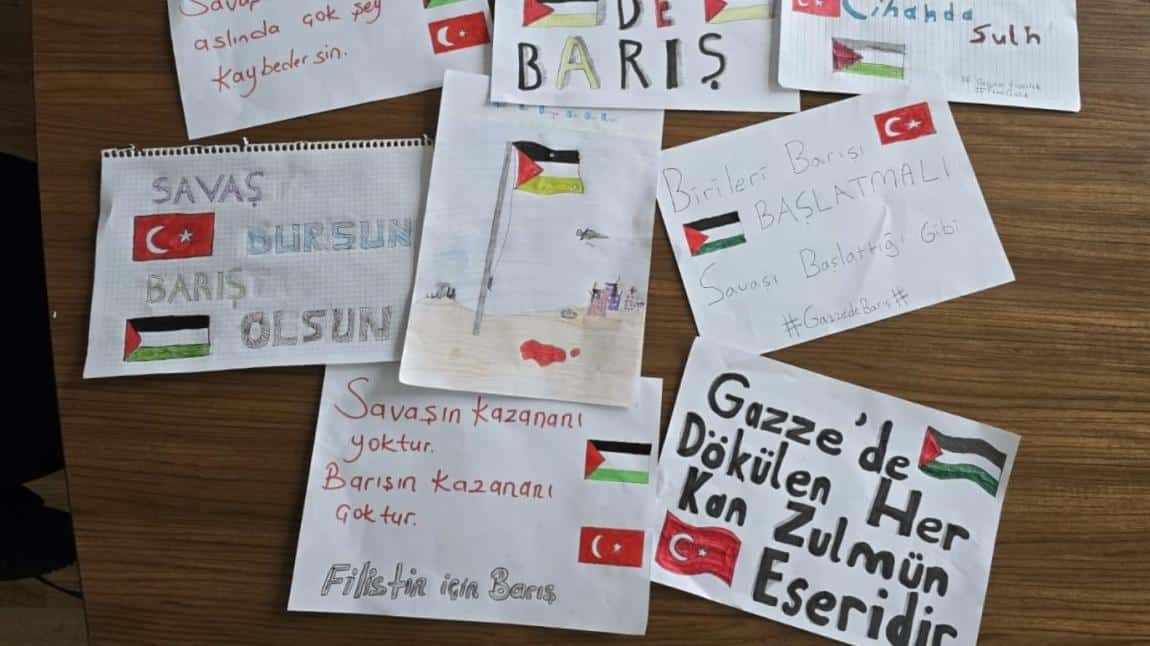 Savaş
aslında çok şey
kaybedersin.
DE
BARIŞ
Cihanda
Sulh
SAVAŞ
DURSUN
BARIŞ
OLSUN
Birileri Barışı
BAŞLATMALI
Savaşı Başlattığı Gibi
#Gazzede Barış#
Savaşın kazananı
yoktur.
Barışın kazananı
çoktur.
Filistin için Barış
Gazze'de
Dökülen Her
Kan Zulmün
Eseridir